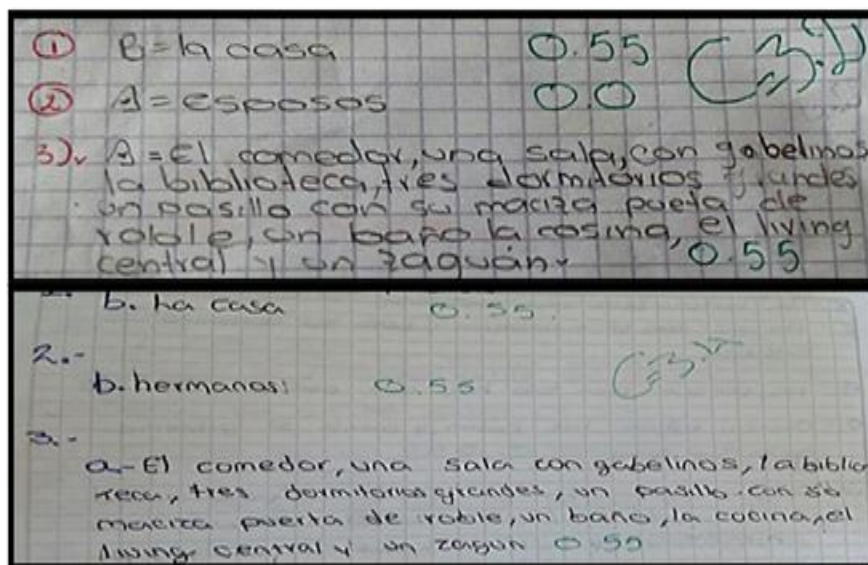 1 B = la casa 0.55
2 A = esposos 0.0
3) A = El comedor, una sala, con gobelinos
la biblioteca, tres dormitorios grandes
un pasillo con su maciza pueta de
roble, un baño la cosina, el living
central y un zaguán. 0.55
b. La casa 0.55
2.-
b. hermanas: 0.55
3.-
a.- El comedor, una sala con gabelinos, la biblio
teca, tres dormitorios grandes, un pasillo con su
maciza puerta de roble, un baño, la cocina, el
living central y un zagun 0.55